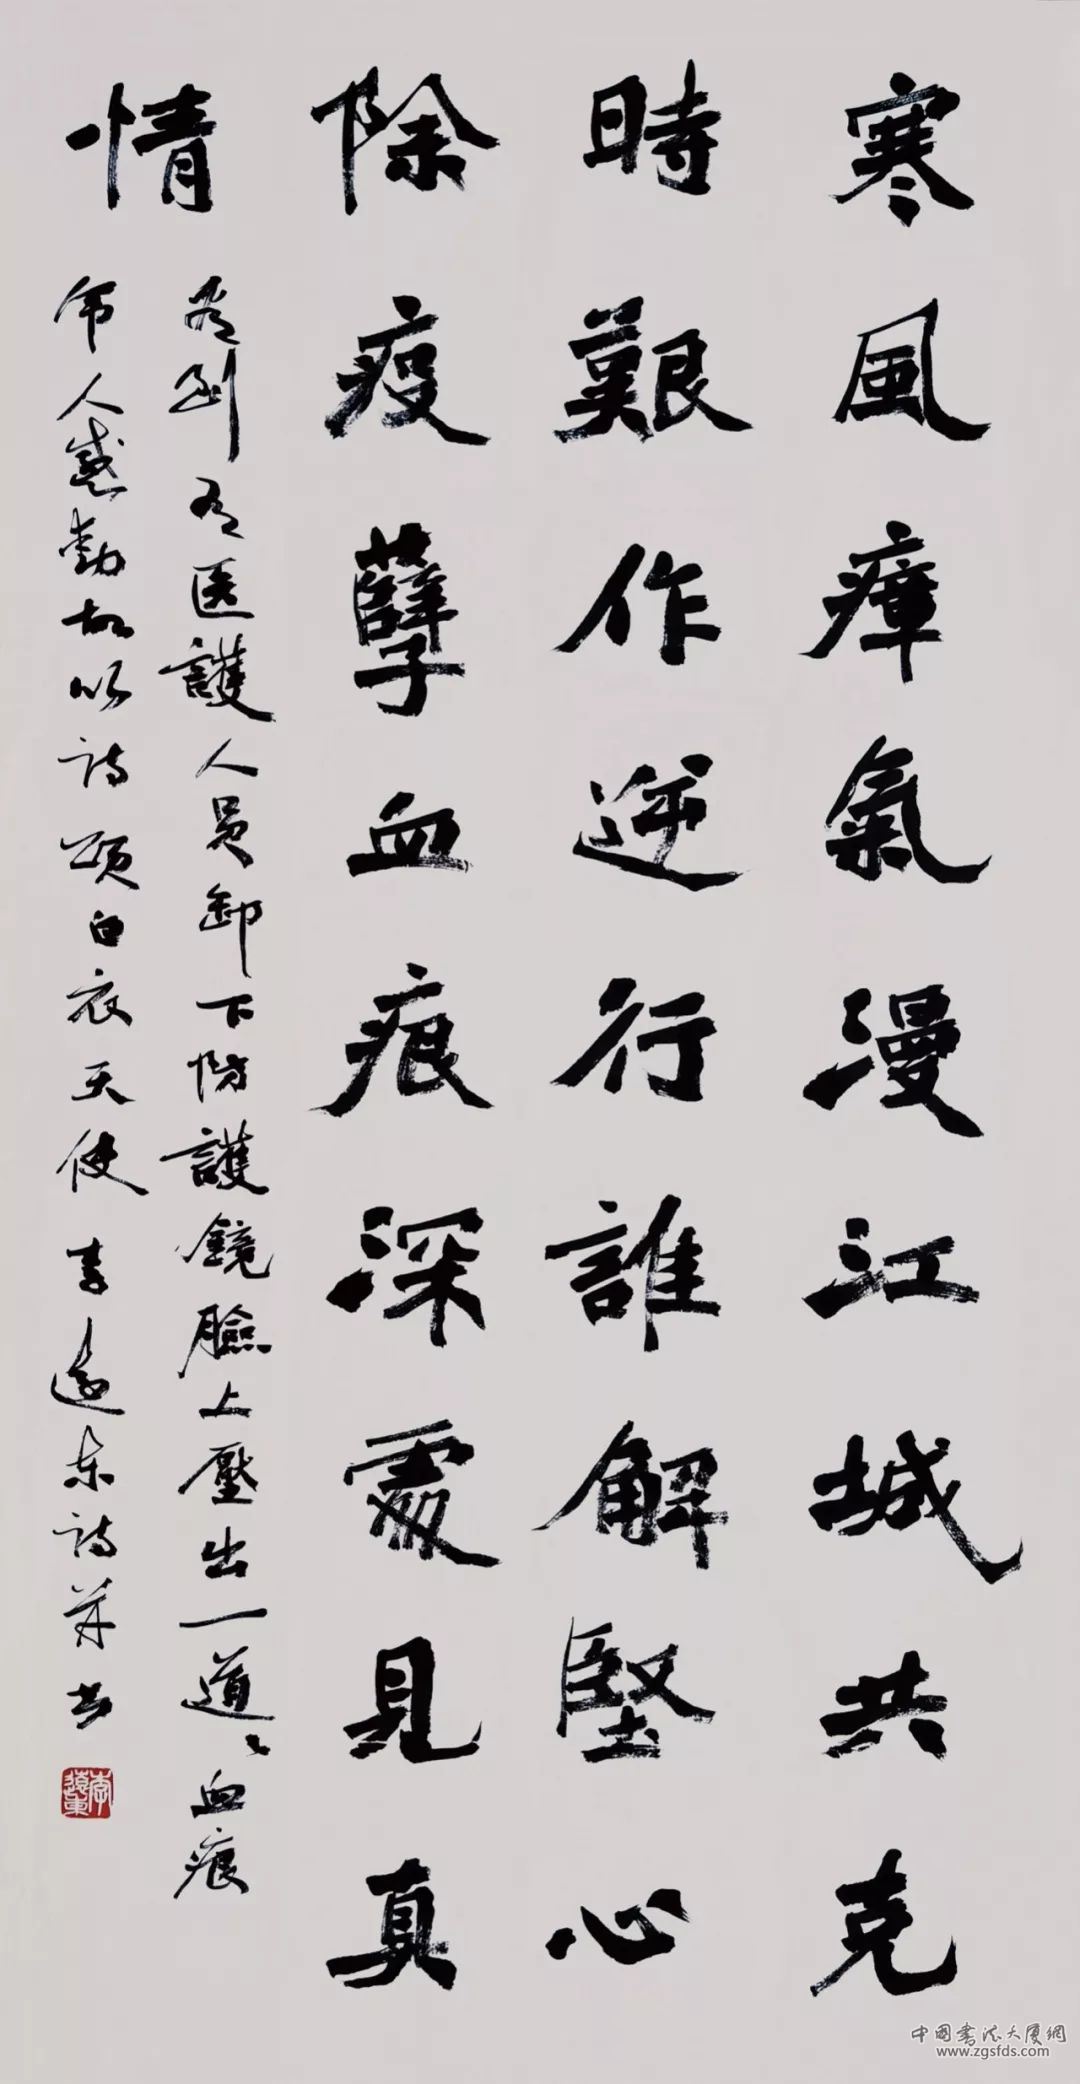 寒風瘴氣漫江城共克
時艱作逆行誰解堅心
除疫孽血痕深處見真
情
看到有医護人員卸下防護鏡臉上壓出一道〻血痕
令人感動故以詩頌白衣天使 李遠東詩並書
李遠東
中国書法大廈網
www.zgsfds.com